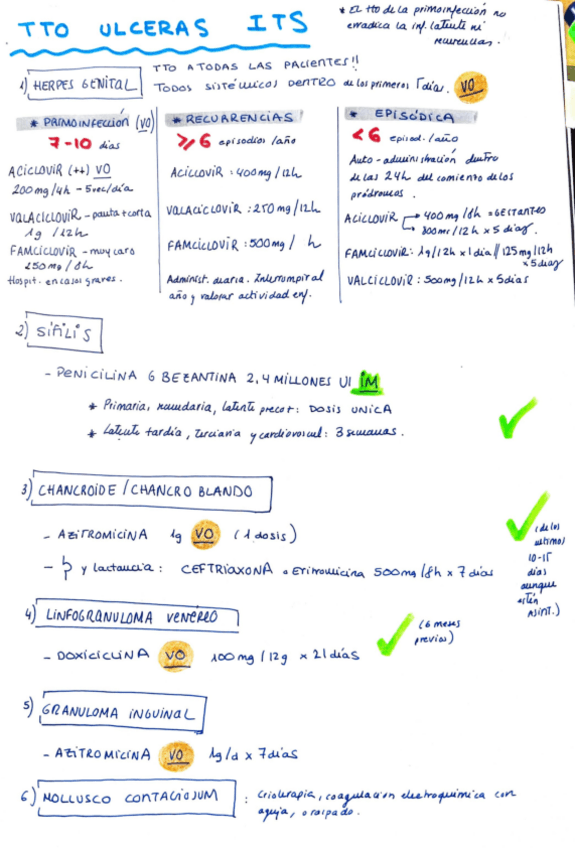 TTO ULCERAS ITS
* El tto de la primoinfección no
erradica la inf. latente ni
recurrencias.
TTO A TODAS LAS PACIENTES!!
1) HERPES GENITAL
TODOS SISTÉMICOS DENTRO de los primeros 5 días. VO
* PRIMOINFECCIÓN (VO)
7-10 días
ACICLOVIR (++) VO
200mg/4h - 5vec/día.
VALACICLOVIR - pauta + corta
1g /12h
FAMCICLOVIR - muy caro
250mg / 8h
Hospit. en casos graves.
* RECURRENCIAS
≥ 6 episodios /año
ACICLOVIR : 400mg /12h
VALACICLOVIR : 250mg /12h
FAMCICLOVIR : 500mg / h
Administ. diaria. Interrumpir al
año y valorar actividad enf.
* EPISÓDICA
< 6 episod. / año
Auto-administración dentro
de las 24h del comienzo de los
pródromos.
ACICLOVIR → 400mg /8h = GESTANTES
→ 800mg /12h x 5 días.
FAMCICLOVIR: 1g /12h x 1 día // 125mg /12h
x 5 días
VALCICLOVIR : 500mg /12h x 5 días
2) SIFILIS
- PENICILINA G BEZANTINA 2,4 MILLONES UI IM
* Primaria, secundaria, latente precoz: DOSIS UNICA
* Latente tardía, terciaria y cardiovascul: 3 semanas.
3) CHANCROIDE / CHANCRO BLANDO
- AZITROMICINA 1g VO (1 dosis)
- y lactancia: CEFTRIAXONA o Eritromicina 500mg /8h x 7 días
(de los
ultimos
10-15
días
aunque
estén
asint.)
4) LINFOGRANULOMA VENÉREO
- DOXICICLINA VO 100mg / 12g x 21 días
(6 meses
previos)
5) GRANULOMA INGUINAL
- AZITROMICINA VO 1g/d x 7días
6) MOLLUSCO CONTAGIOSUM : Crioterapia, coagulacion electroquímica con
aguja, o raspado.